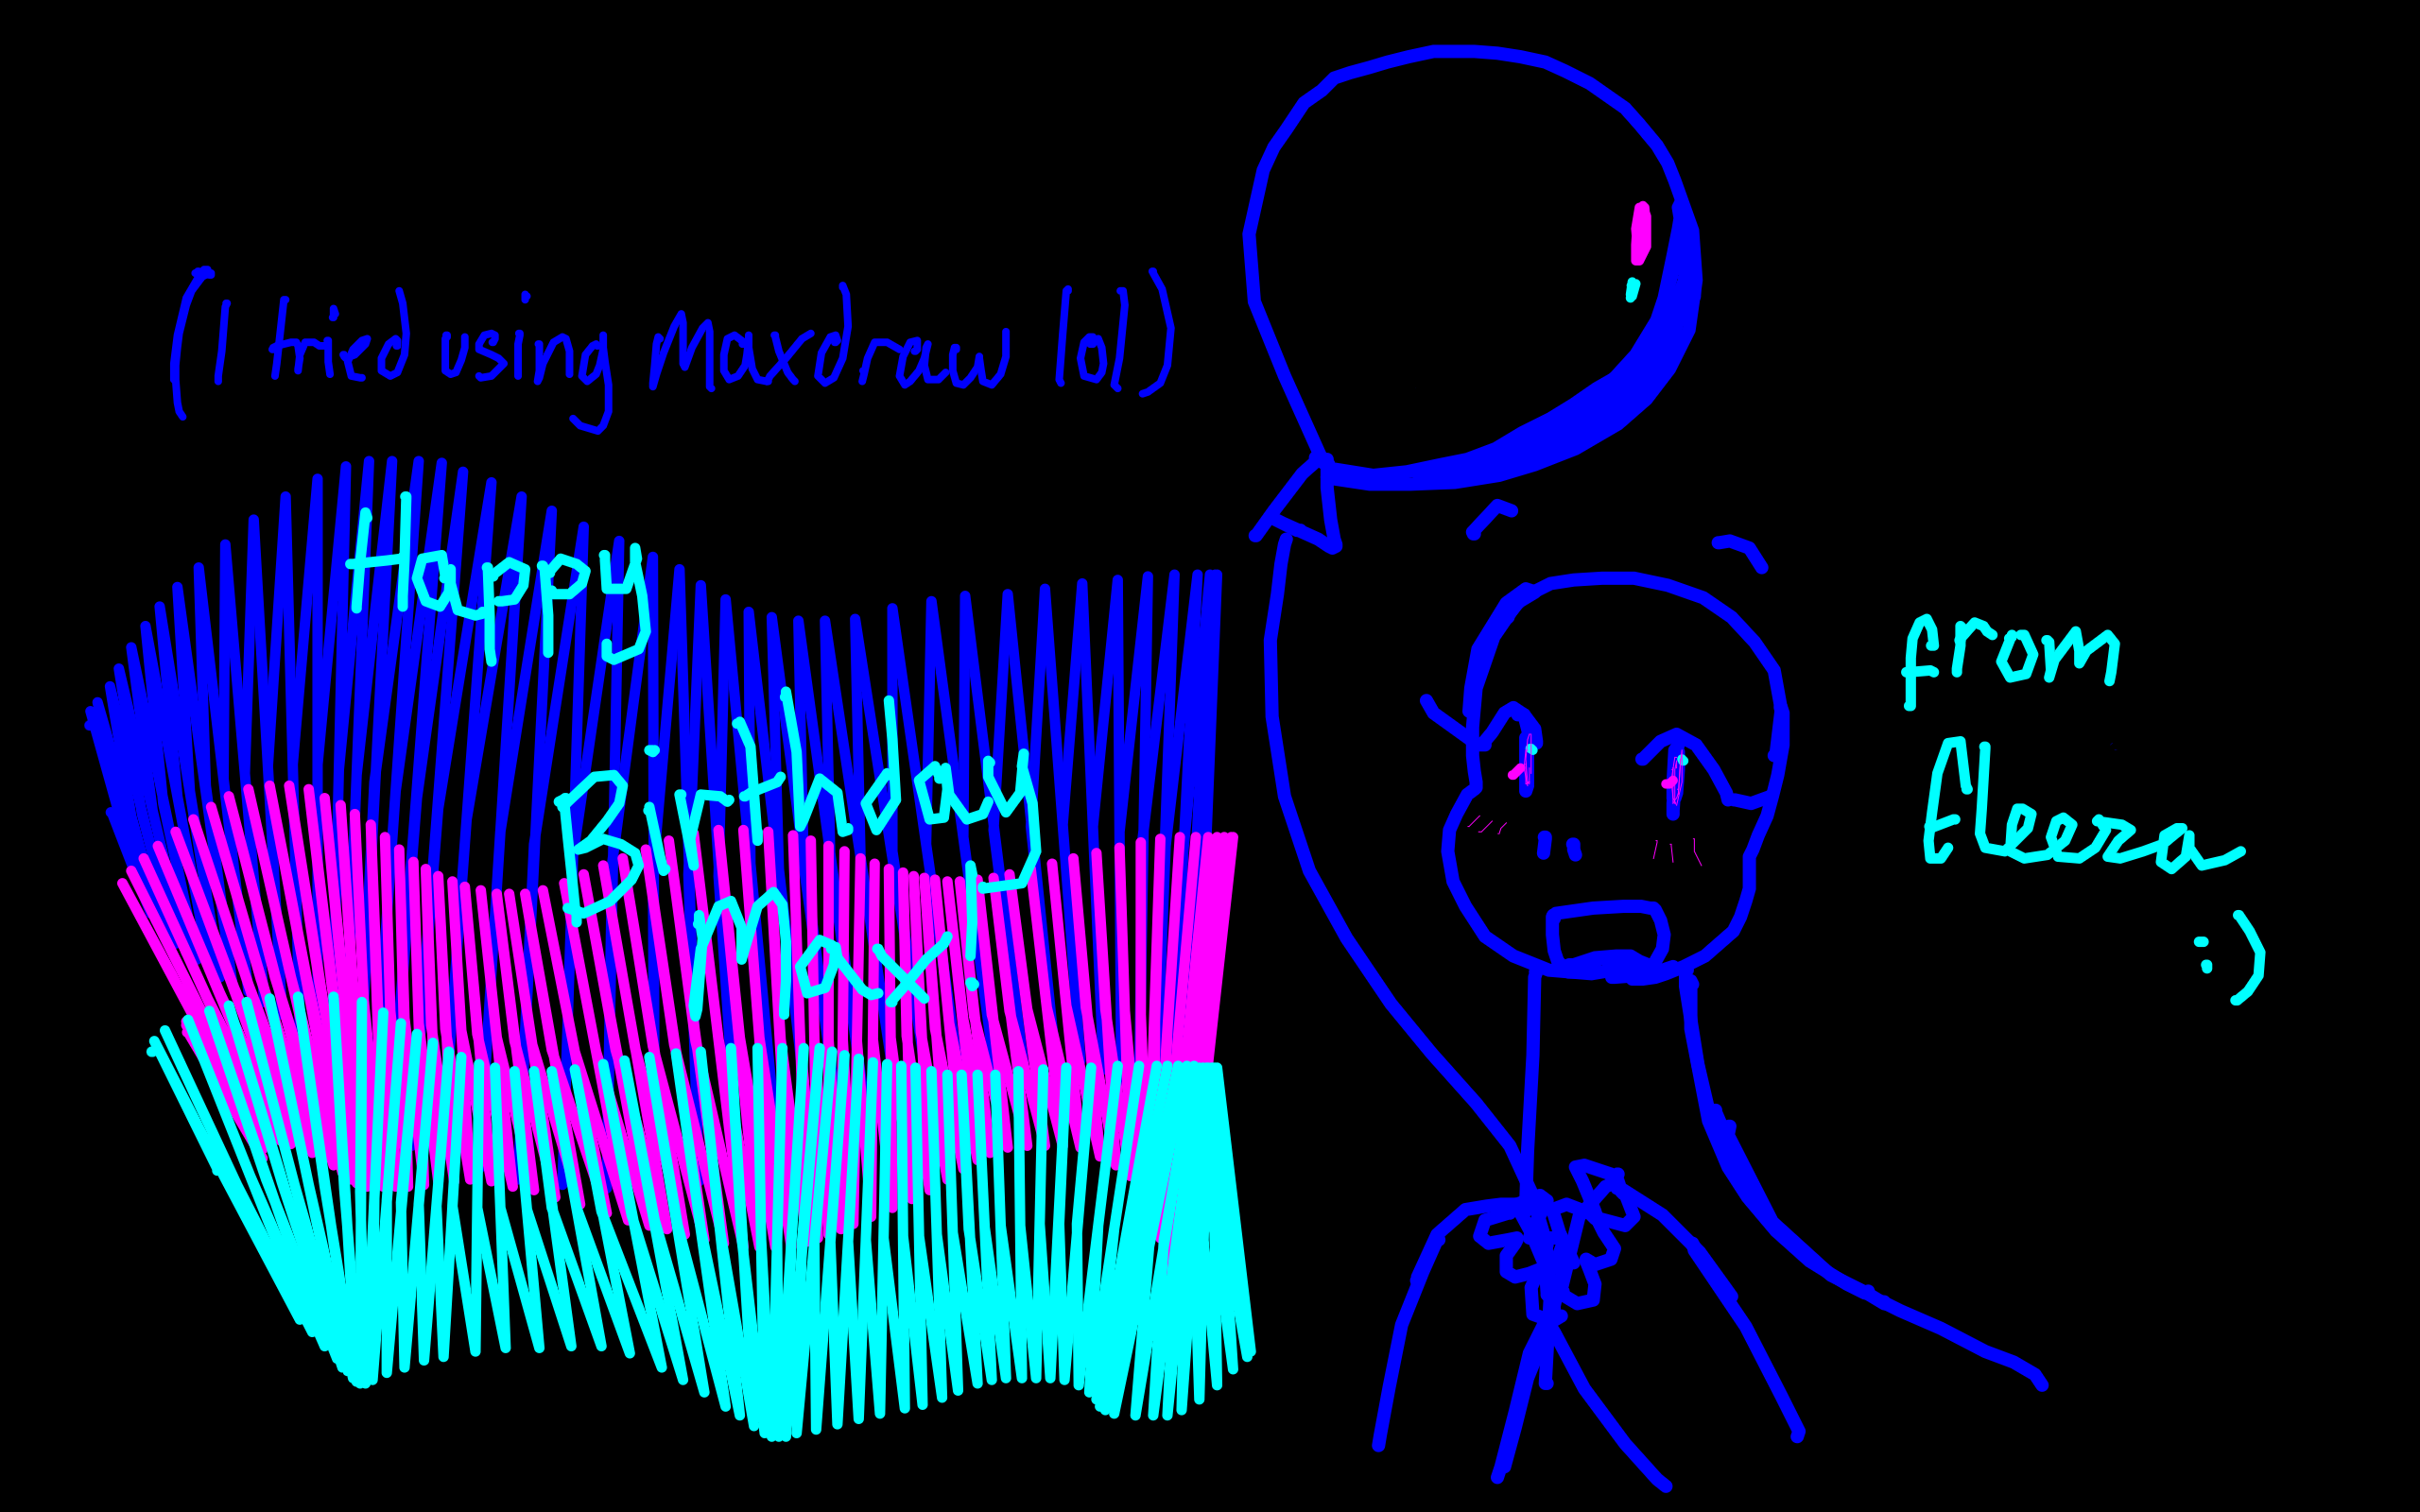 (I tried using maxdraw lol)
Happy
Birthday
max!
from
Eleena
:)